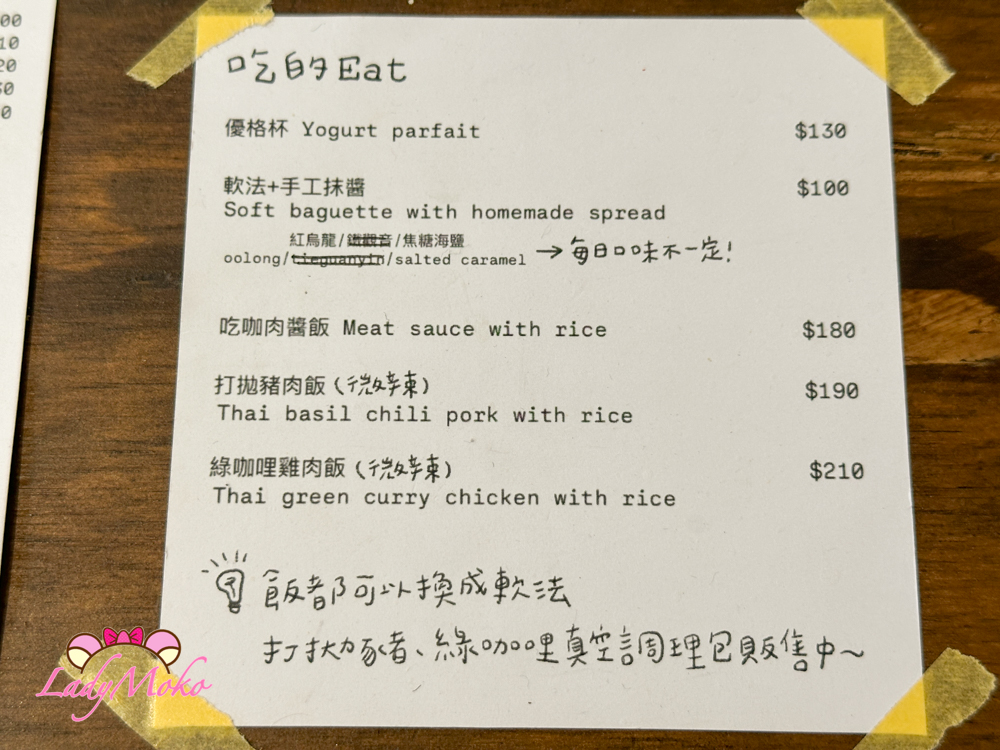 00
10
20
50
0
吃的Eat
優格杯 Yogurt parfait $130
軟法+手工抹醬 $100
Soft baguette with homemade spread
紅烏龍/鐵觀音/焦糖海鹽
oolong/tieguanyin/salted caramel → 每日口味不一定!
吃咖肉醬飯 Meat sauce with rice $180
打拋豬肉飯(微辣) $190
Thai basil chili pork with rice
綠咖哩雞肉飯(微辣) $210
Thai green curry chicken with rice
飯都可以換成軟法
打拋豬、綠咖哩真空調理包販售中~
LadyMoko